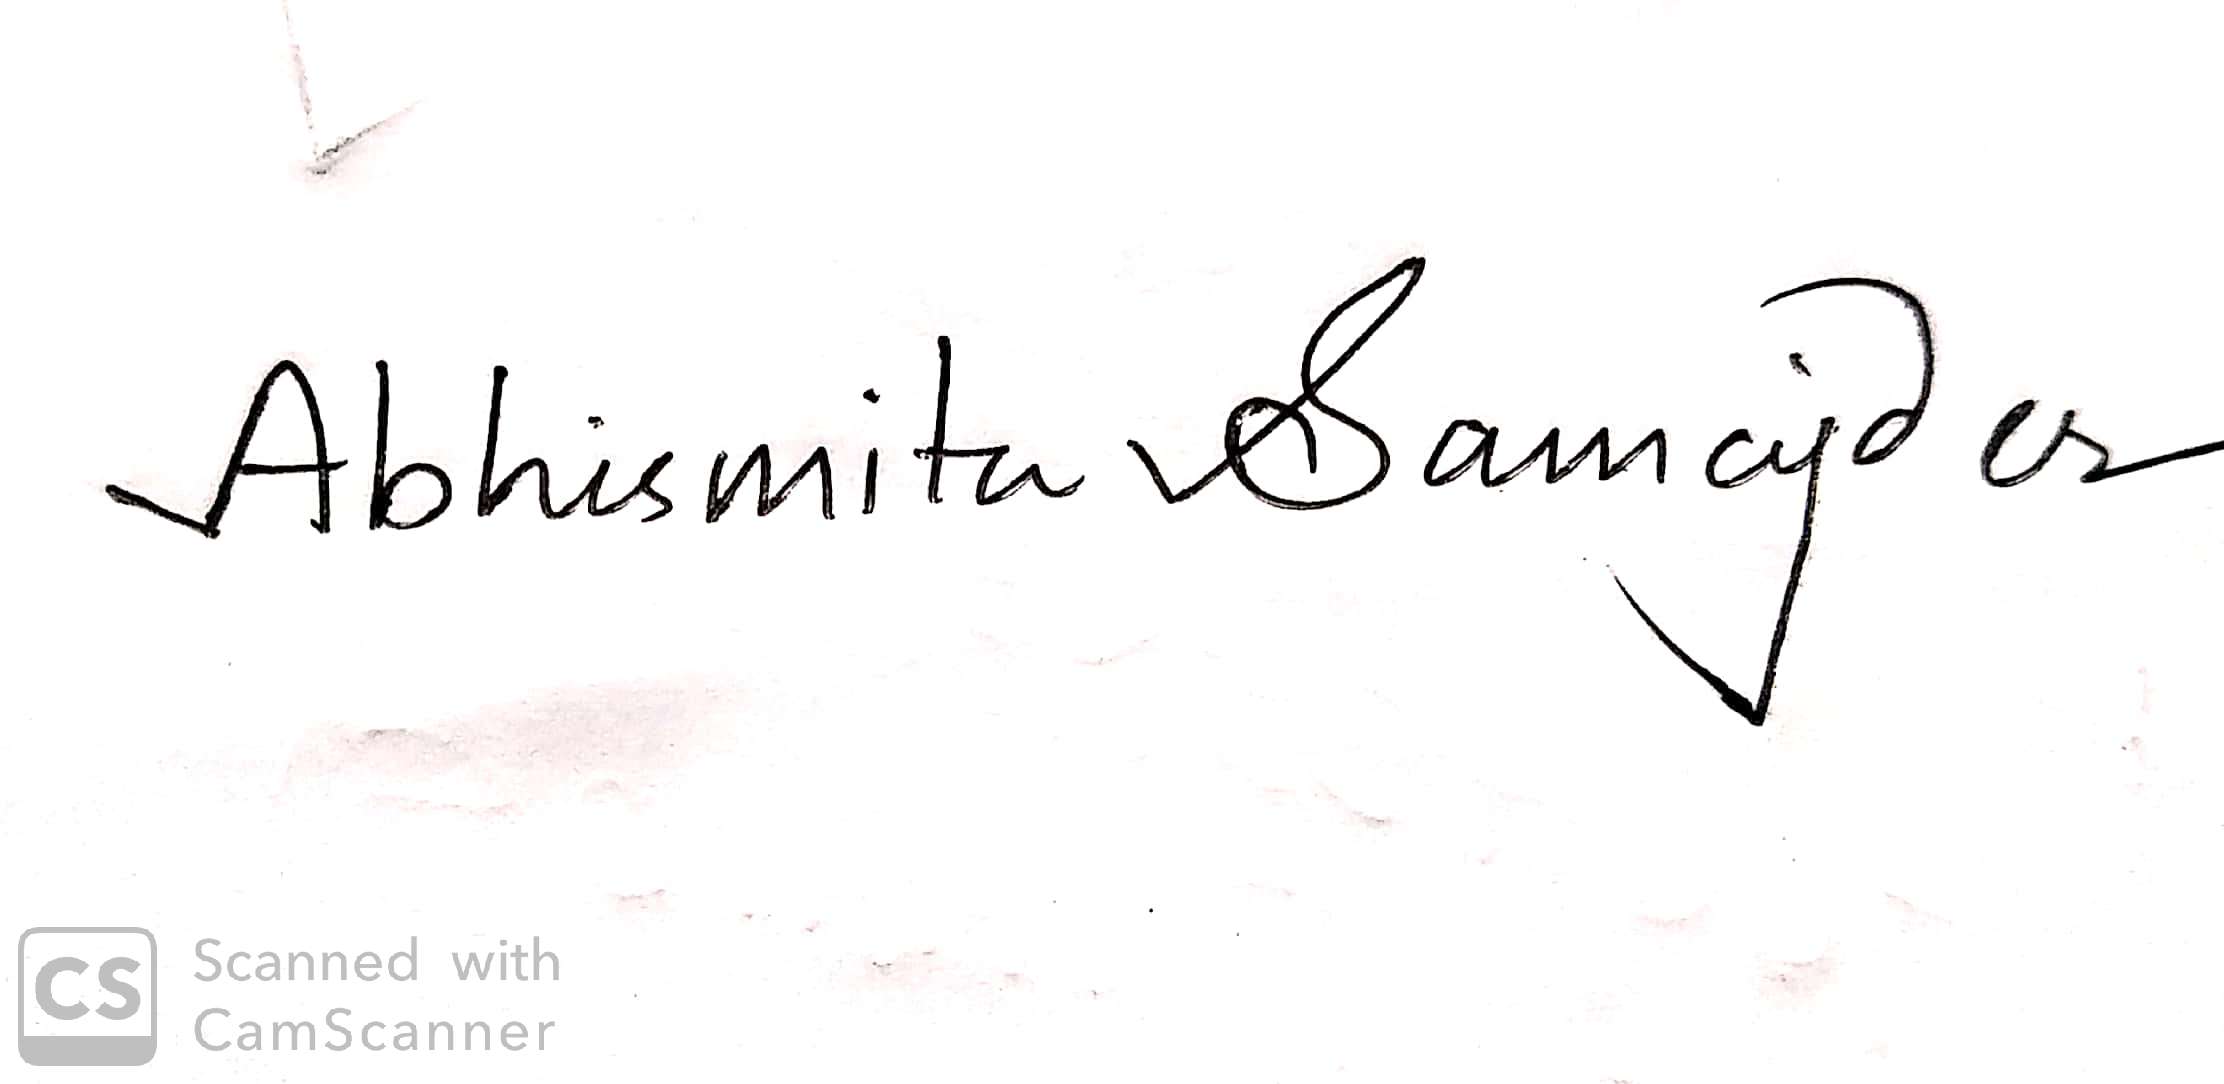 Abhismita Samajder
CS
Scanned with
CamScanner